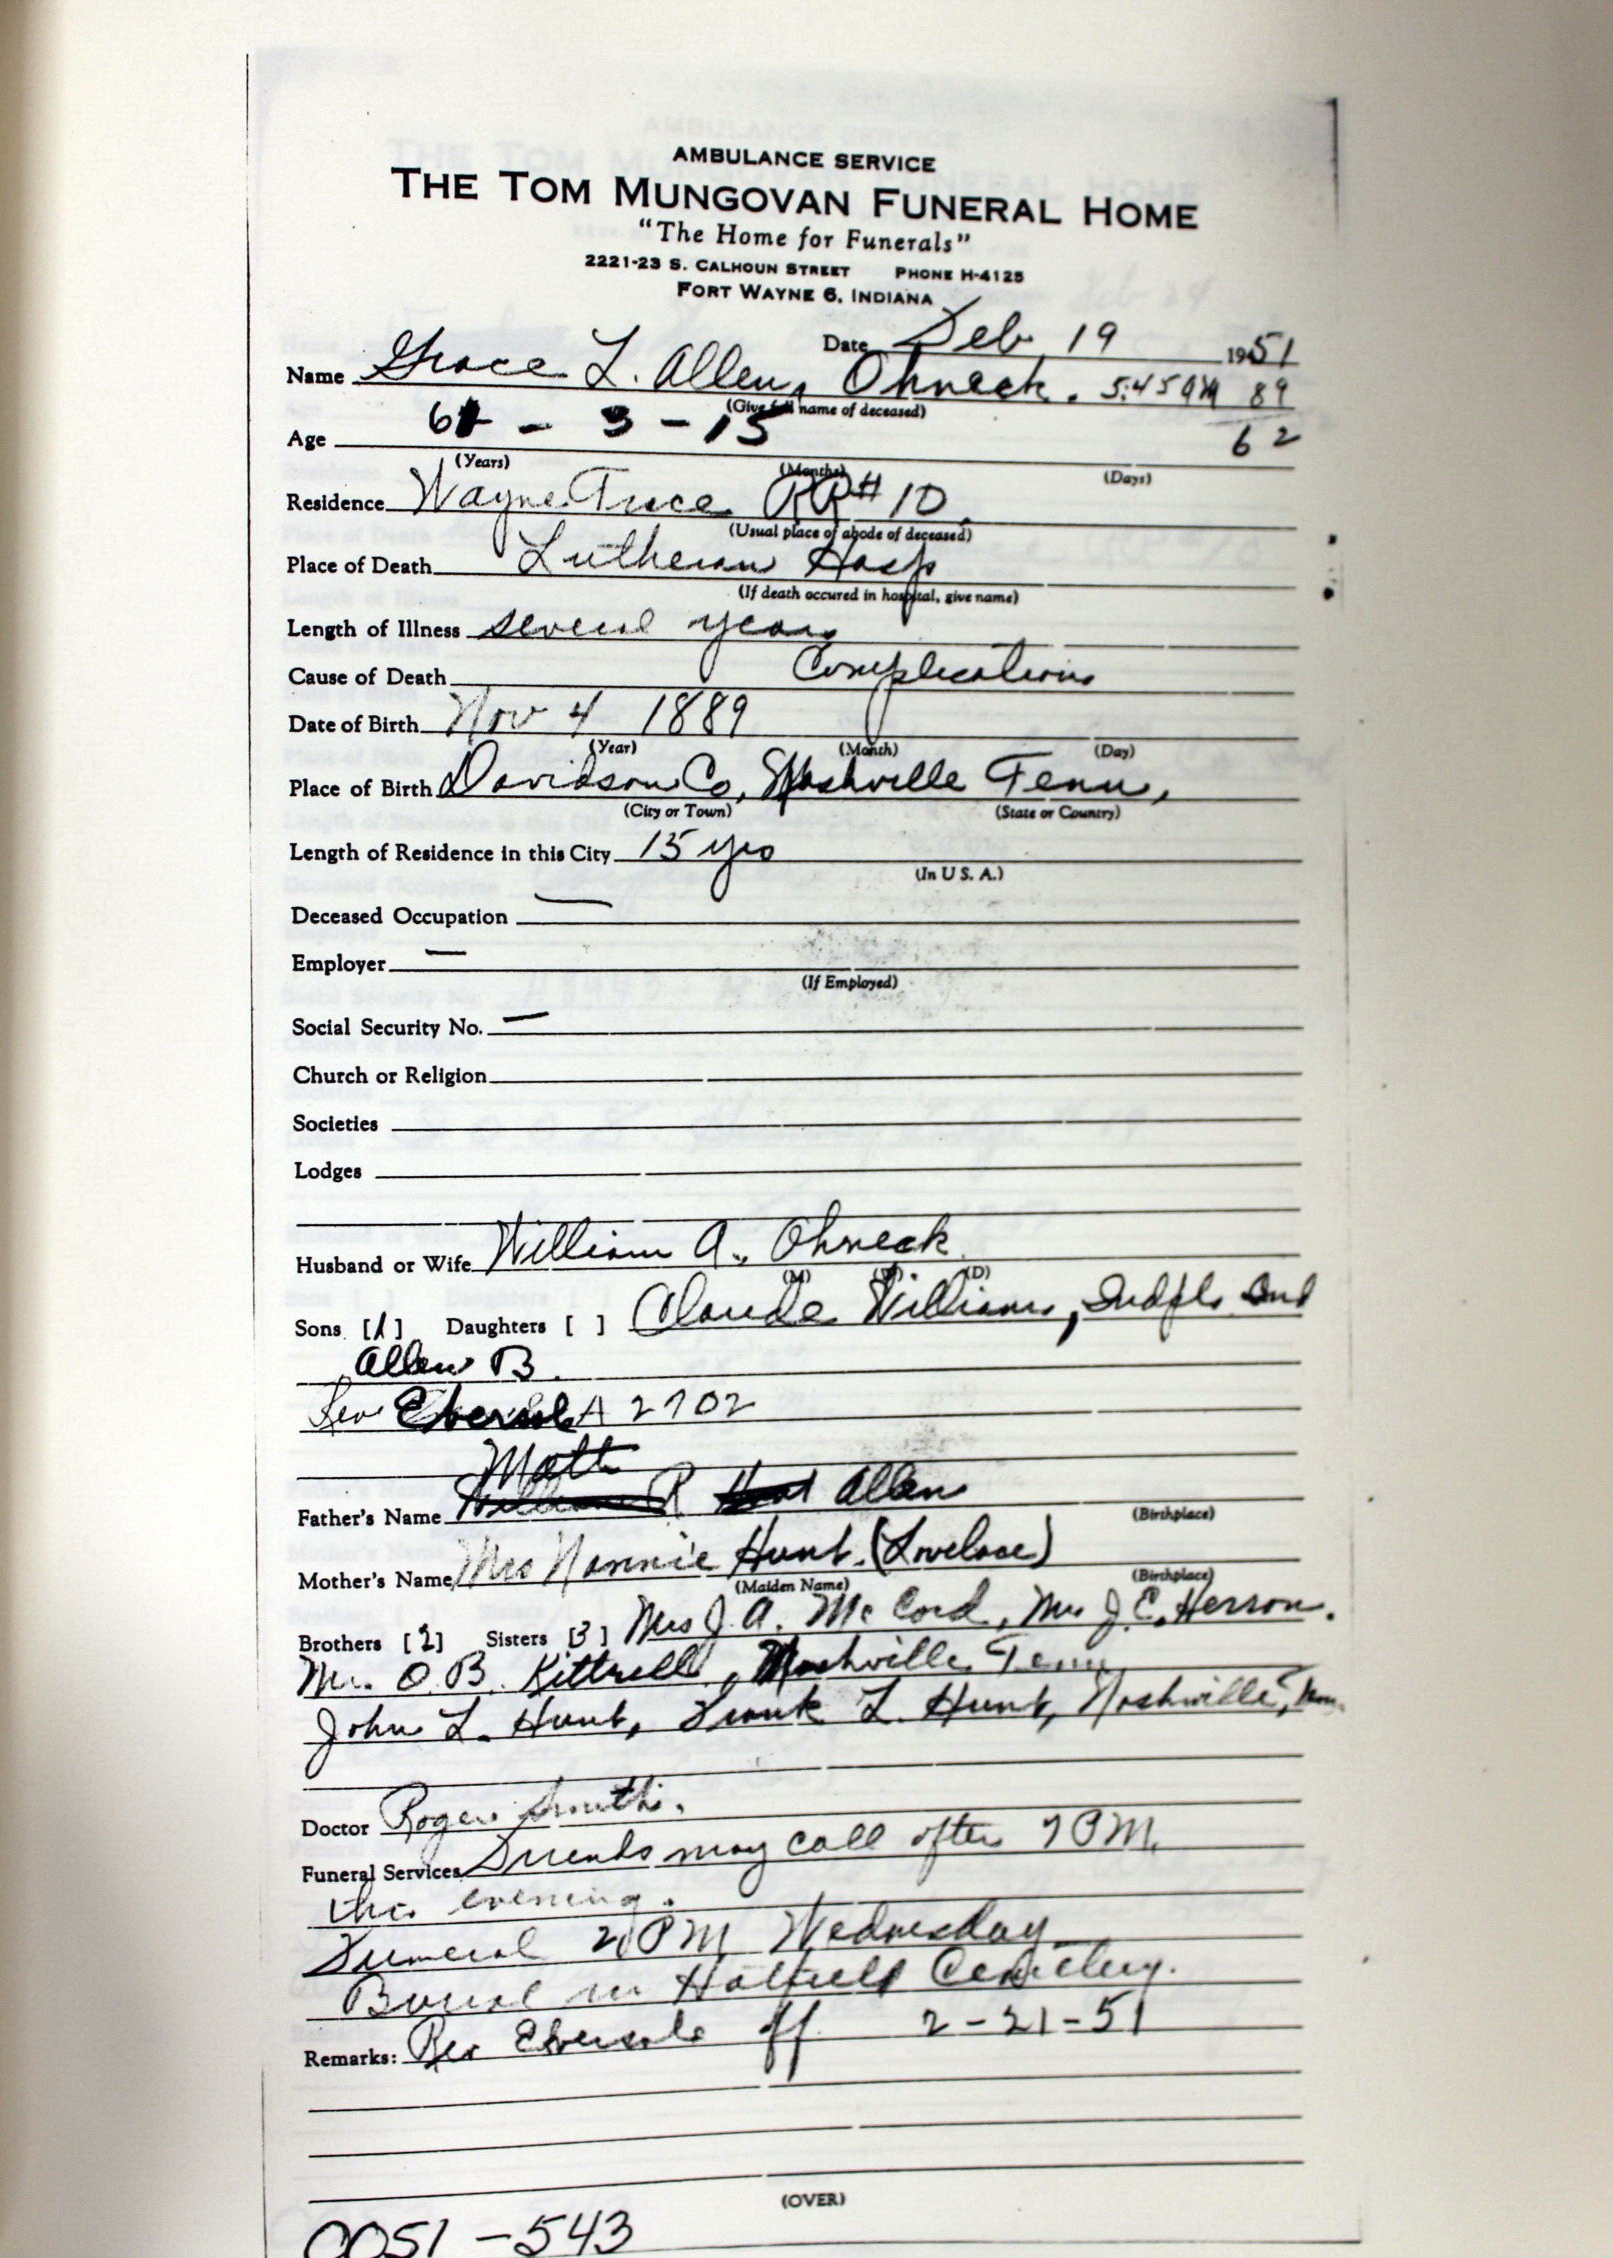 AMBULANCE SERVICE
THE TOM MUNGOVAN FUNERAL HOME
"The Home for Funerals"
2221-23 S. CALHOUN STREET PHONE H-4125
FORT WAYNE 6, INDIANA
Date Feb 19 1951
Name Grace L. Allen, Ohneck. 5:45 AM 89
(Give full name of deceased)
Age 61 - 3 - 15 62
(Years) (Months) (Days)
Residence Wayne Trace RR# 10
(Usual place of abode of deceased)
Place of Death Lutheran Hosp
(If death occured in hospital, give name)
Length of Illness several years
Cause of Death Complications
Date of Birth Nov 4 1889
(Year) (Month) (Day)
Place of Birth Davidson Co, Nashville Tenn,
(City or Town) (State or Country)
Length of Residence in this City 15 yrs
(In U S. A.)
Deceased Occupation —
Employer —
(If Employed)
Social Security No. —
Church or Religion
Societies
Lodges
Husband or Wife William A. Ohneck
(M) (D)
Sons [1] Daughters [ ] Claude Williams, Indpls Ind
Allen B.
Rev Ebersole A 2702
Matt
Father's Name William R Hunt Allen
(Birthplace)
Mother's Name Mrs Nannie Hunt. (Lovelace)
(Maiden Name) (Birthplace)
Brothers [2] Sisters [3] Mrs J. A. McCord, Mrs J. C. Herron.
Mrs. O. B. Kittrell, Nashville, Tenn
John L. Hunt, Frank L. Hunt, Nashville, Tenn.
Doctor Roger Smith.
Funeral Services Friends may call after 7 PM.
this evening.
Funeral 2 PM Wednesday
Burial in Hatfield Cemetery.
Remarks: Rev Ebersole off 2-21-51
(OVER)
0051 - 543